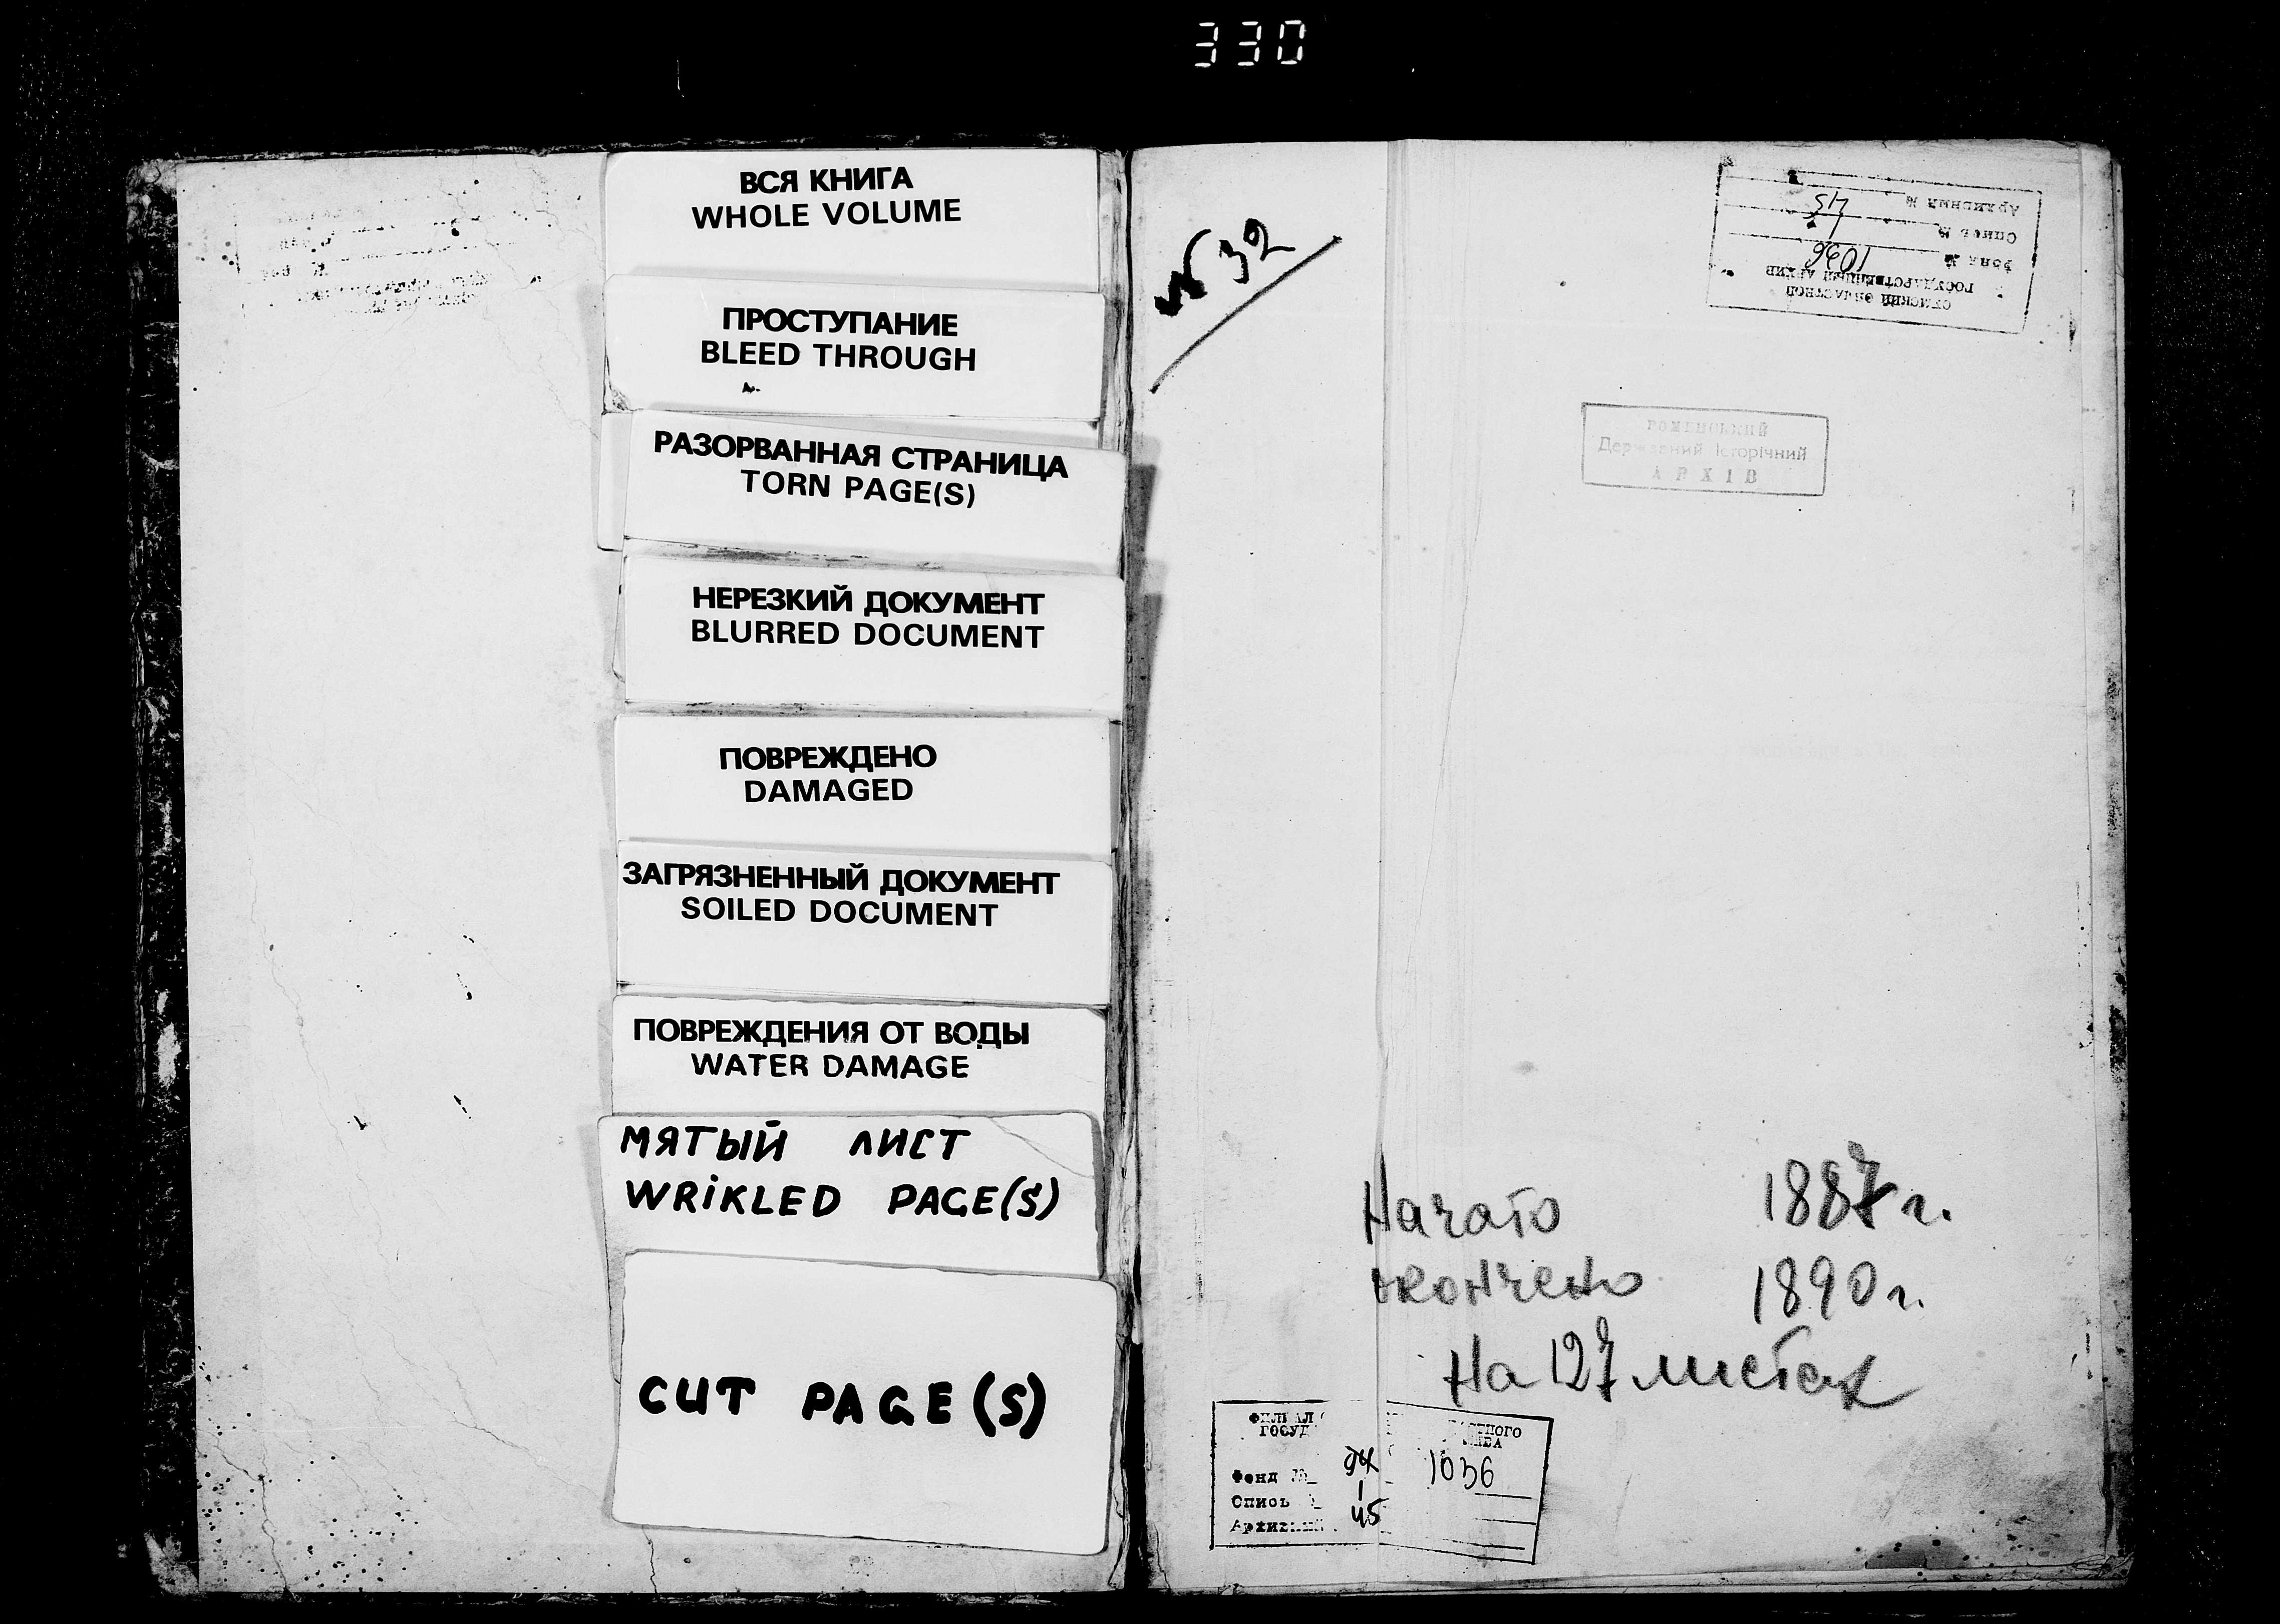 330
ВСЯ КНИГА
WHOLE VOLUME
ПРОСТУПАНИЕ
BLEED THROUGH
РАЗОРВАННАЯ СТРАНИЦА
TORN PAGE(S)
НЕРЕЗКИЙ ДОКУМЕНТ
BLURRED DOCUMENT
ПОВРЕЖДЕНО
DAMAGED
ЗАГРЯЗНЕННЫЙ ДОКУМЕНТ
SOILED DOCUMENT
ПОВРЕЖДЕНИЯ ОТ ВОДЫ
WATER DAMAGE
МЯТЫЙ ЛИСТ
WRIKLED PAGE(S)
CUT PAGE(S)
№ 32
СУМСКИЙ ОБЛАСТНОЙ
ГОСУДАРСТВЕННЫЙ АРХИВ
Фонд № 1036
Опись № 1
Архивный № 45
РОМЕНСЬКИЙ
Державний Історічний
АРХІВ
Начато 1887 г.
окончено 1890 г.
На 127 листах
ФИЛИАЛ
ГОСУД
Фонд № 94 1036
Опись 1
Архивный 45